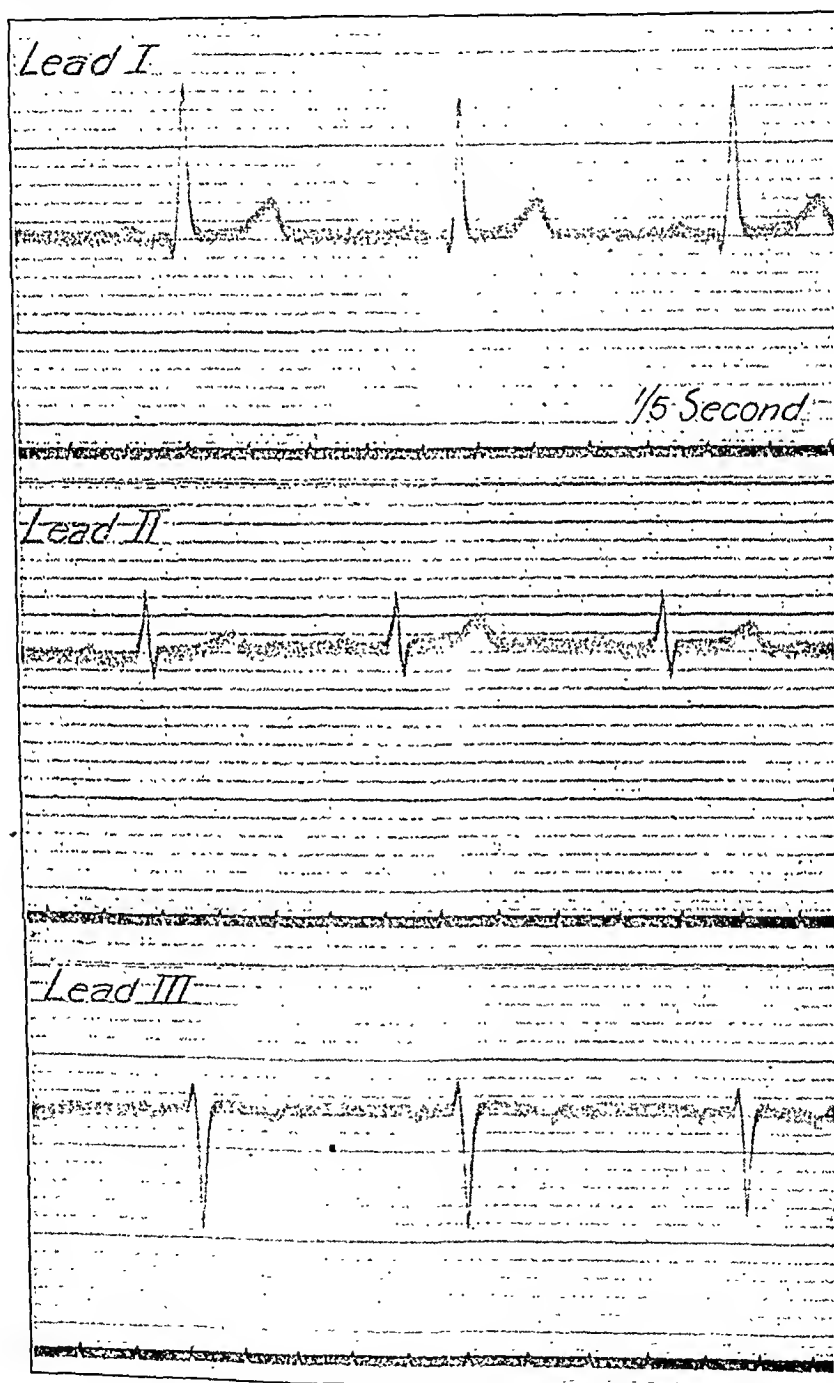 Lead I
1/5 Second
Lead II
Lead III